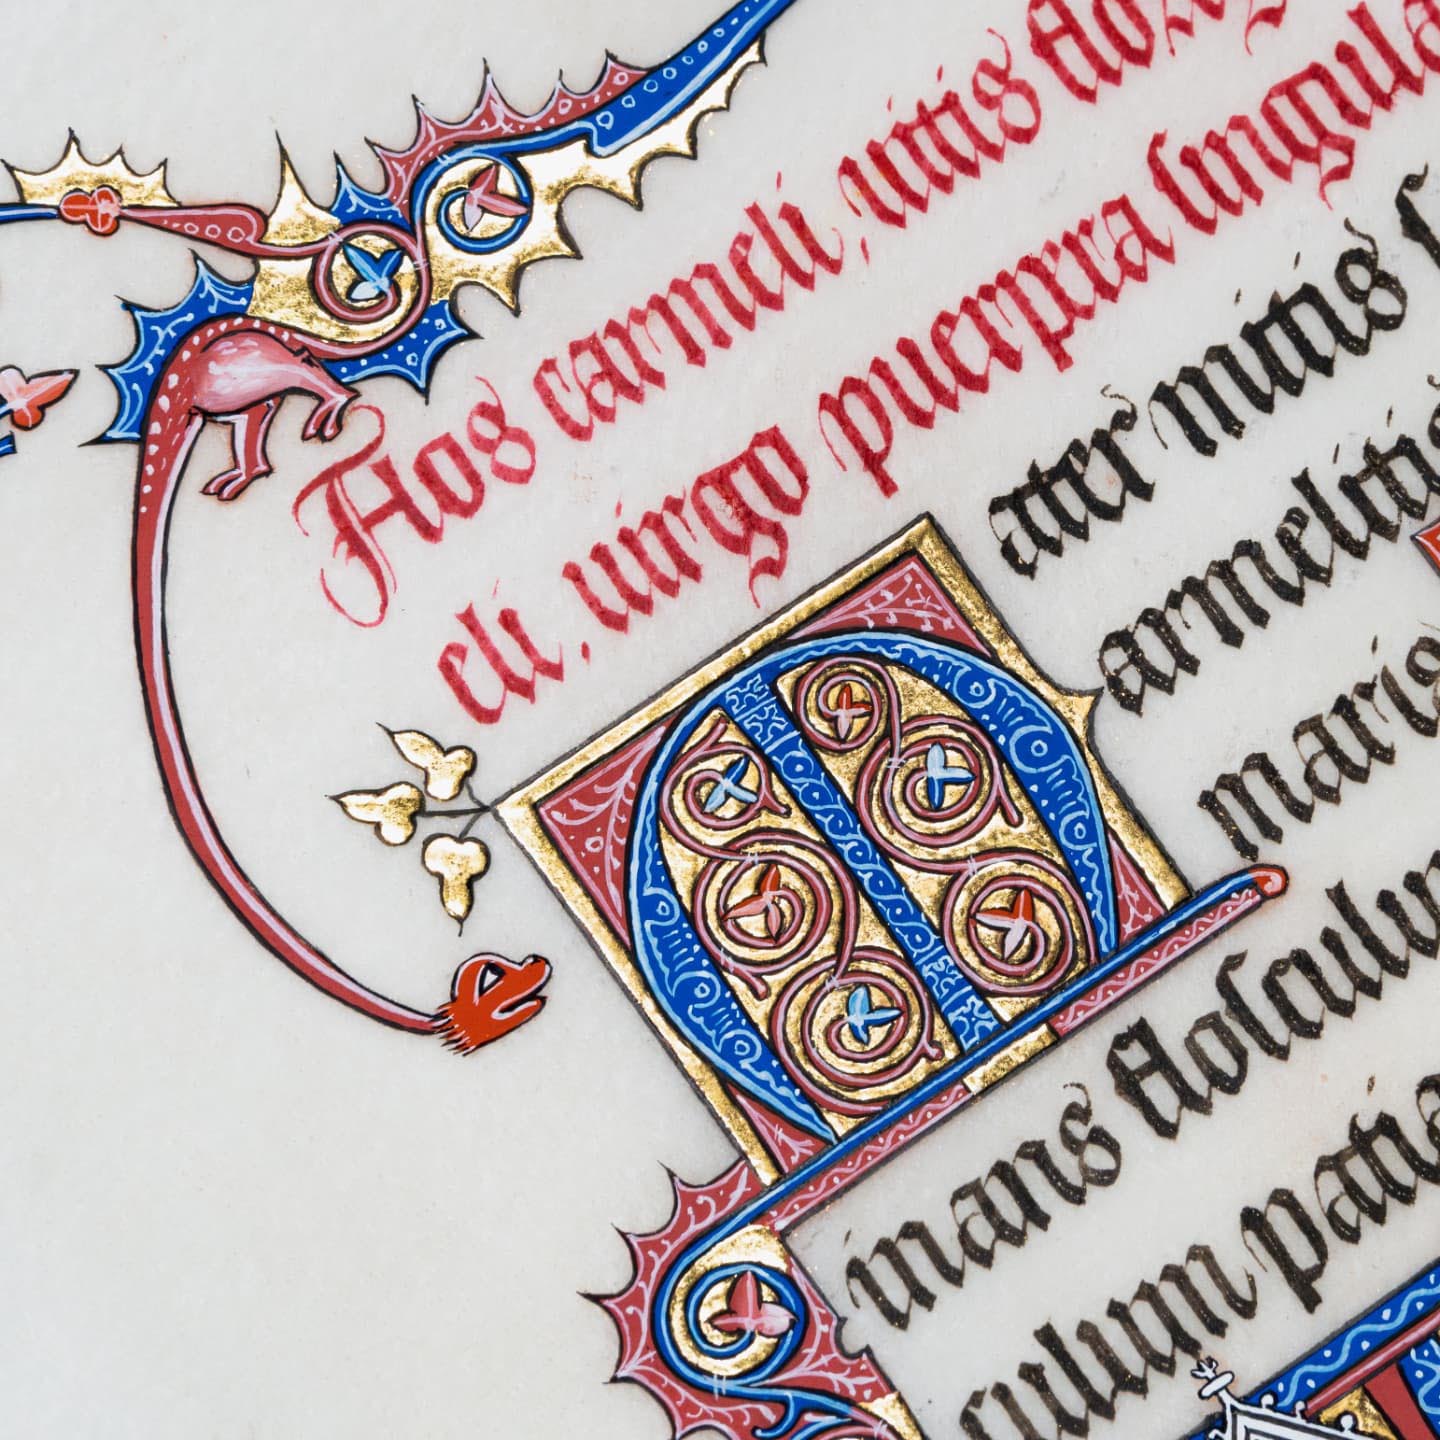 Flos carmeli, uitis florig
eli, uirgo puerpra singula
Mater mitis s
armelitis
maris
inans flosculum
culum patia